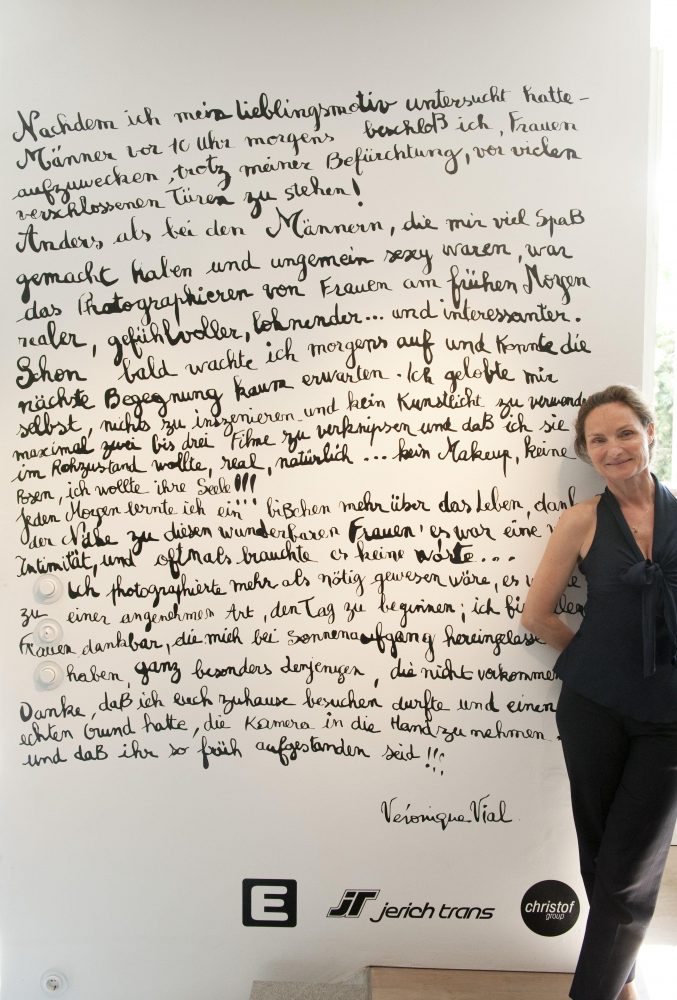 Nachdem ich mein Lieblingsmotiv untersucht hatte -
Männer vor 10 Uhr morgens beschloß ich, Frauen
aufzuwecken, trotz meiner Befürchtung, vor vielen
verschlossenen Türen zu stehen!
Anders, als bei den Männern, die mir viel Spaß
gemacht haben und ungemein sexy waren, war
das Photographieren von Frauen am frühen Morgen
realer, gefühlvoller, lohnender... und interessanter.
Schon bald wachte ich morgens auf und konnte die
nächste Begegnung kaum erwarten. Ich gelobte mir
selbst, nichts zu inszenieren und kein Kunstlicht zu verwenden
maximal zwei bis drei Filme zu verknipsen und daß ich sie
im Rohzustand wollte, real, natürlich... kein Makeup, keine
Posen, ich wollte ihre Seele!!!
Jeden Morgen lernte ich ein bißchen mehr über das Leben, dank
der Nähe zu diesen wunderbaren Frauen, es war eine
Intimität, und oftmals brauchte es keine worte...
Ich photographierte mehr als nötig gewesen wäre, es
zu einer angenehmen Art, den Tag zu beginnen; ich bin
Frauen dankbar, die mich bei Sonnenaufgang hereingelassen
haben, ganz besonders denjenigen, die nicht vorkommen
Danke, daß ich euch zuhause besuchen durfte und einen
echten Grund hatte, die Kamera in die Hand zu nehmen
und daß ihr so früh aufgestanden seid!!!
Véronique Vial
E
JT jerich trans
christof
group